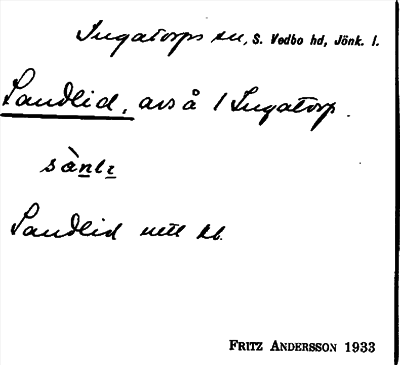 Ingatorps sn, S. Vedbo hd, Jönk. l.
Sandlid, avs å 1 Ingatorp.
sànlı
Sandlid utt kb.
FRITZ ANDERSSON 1933